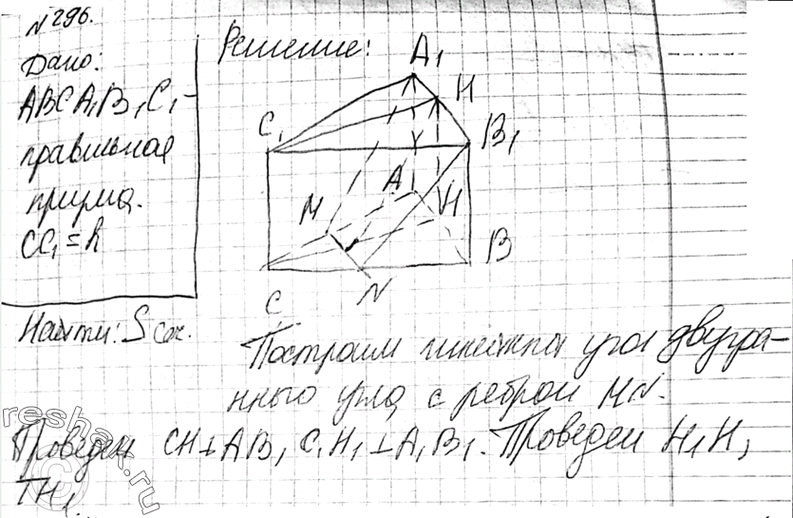 №296.
Дано:
ABCA₁B₁C₁-
правильная
призма.
CC₁=h
Найти: Sсеч.
Решение:
A₁
H
C₁
B₁
A
M
H
B
C
N
Построим линейный угол двугра-
нного угла с ребром MN.
Проведем CH⊥AB, C₁H₁⊥A₁B₁. Проведем H₁H,
TH₁
reshak.ru